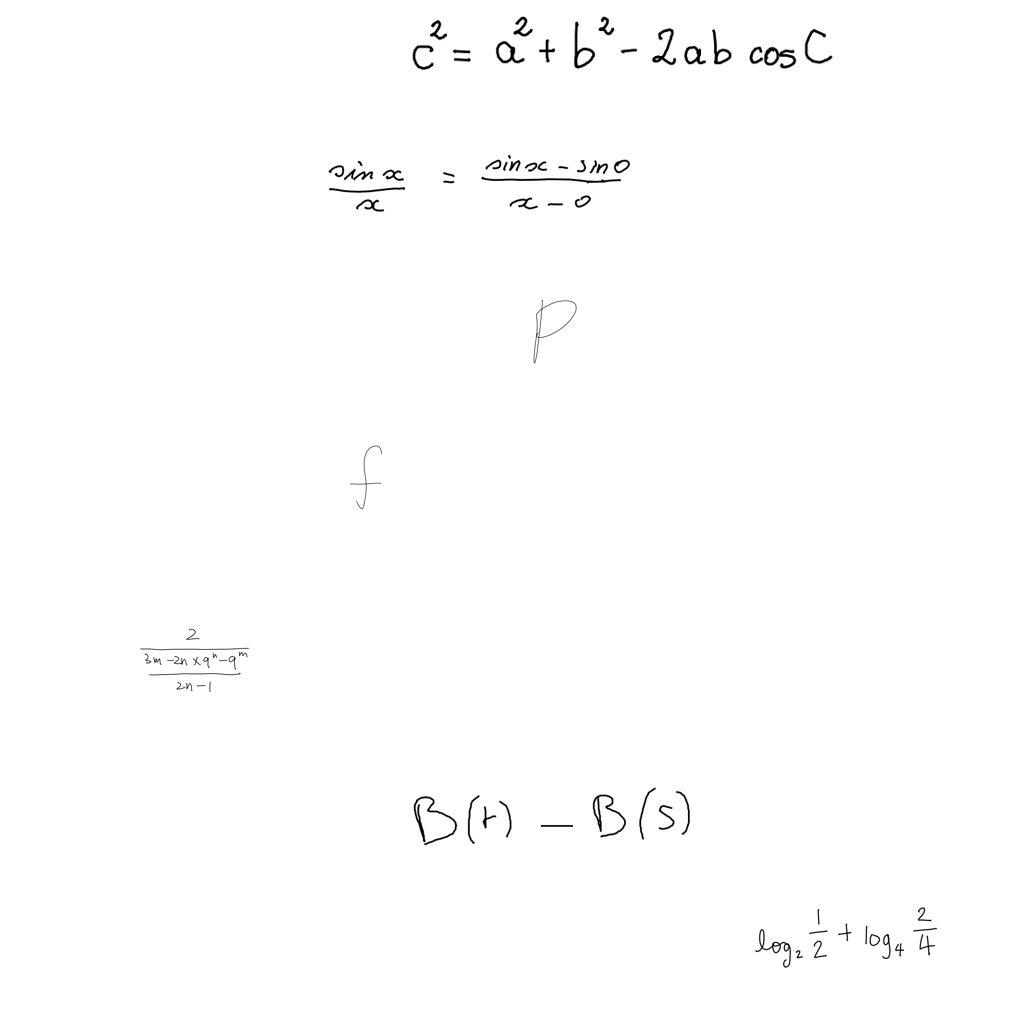 c² = a² + b² - 2ab cos C
\frac{sin x}{x} = \frac{sin x - sin 0}{x - 0}
p
f
\frac{2}{\frac{3m - 2n × 9^n - 9^m}{2n - 1}}
B(t) - B(s)
log₂ \frac{1}{2} + log₄ \frac{2}{4}